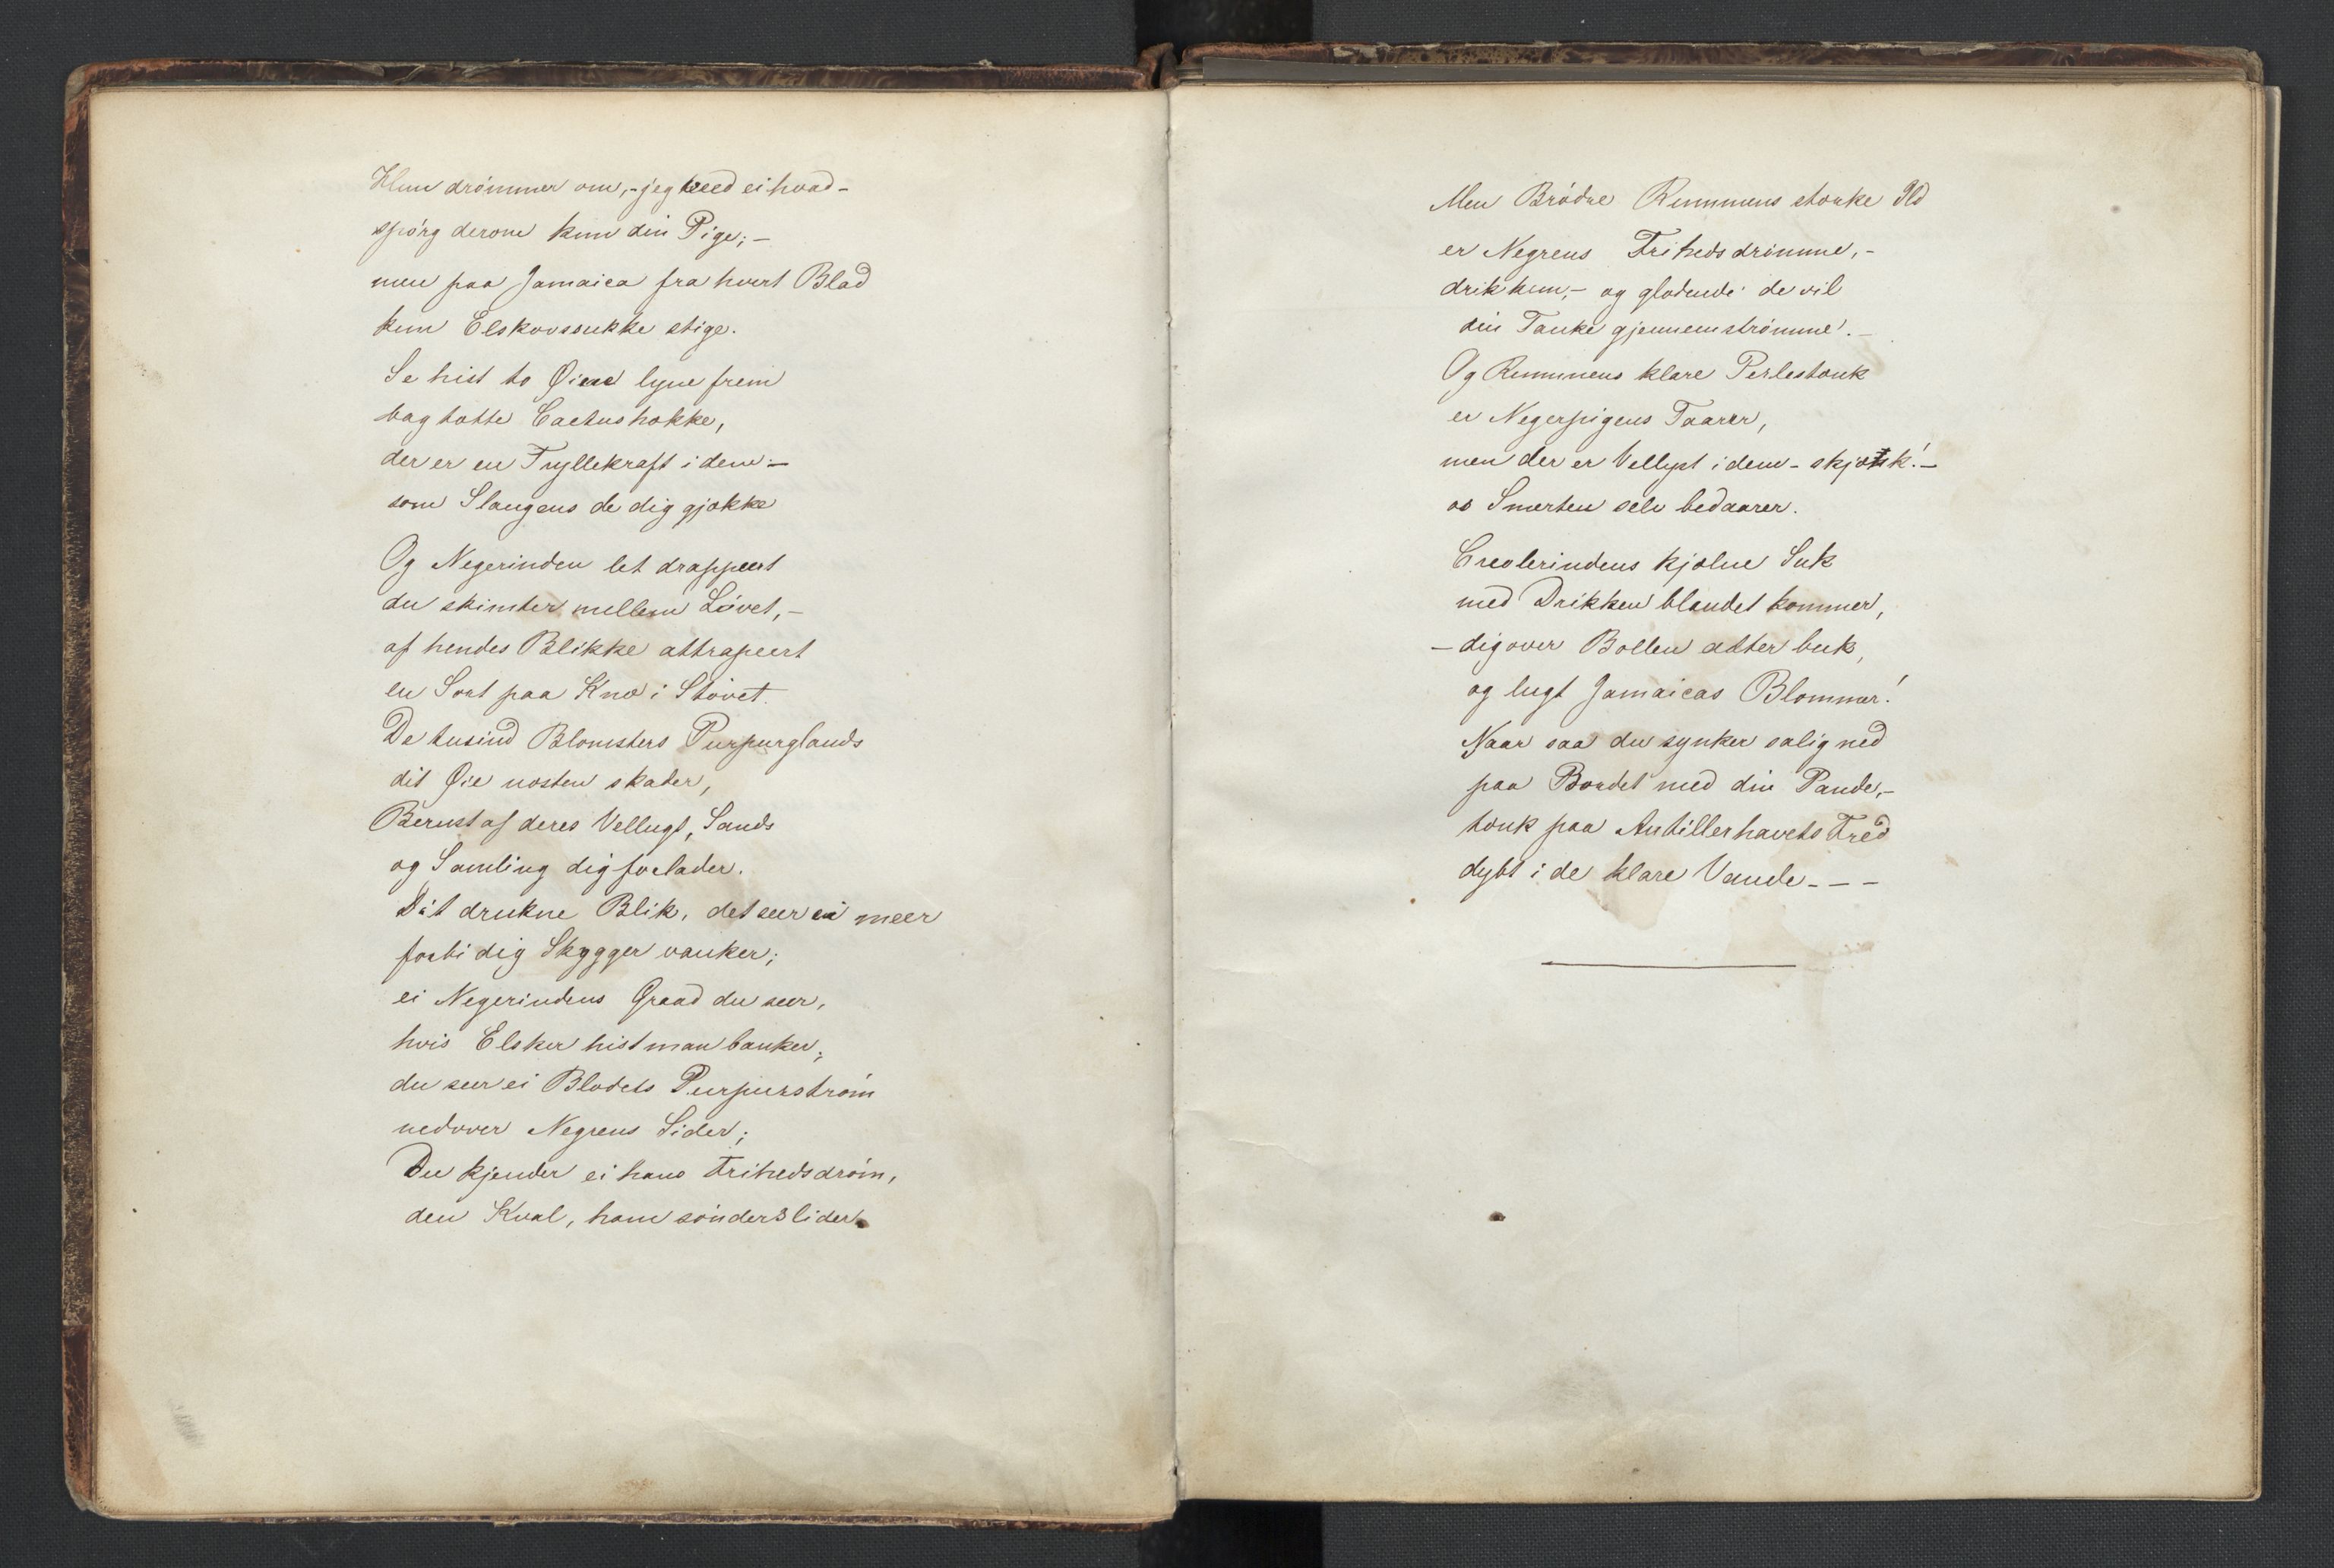 Hun drømmer om, - jeg veed ei hvad -
spørg derom kun din Pige; -
men paa Jamaica fra hvert Blad
kun Elskovssukke stige.
Se hist to Øine lyne frem
bag tætte Cactushække,
der er en Tryllekraft i dem: -
som Slangens de dig gjække
Og Negerinden let drappeert
du skimter mellem Løvet, -
af hendes Blikke attrapeert
en Sort paa Knæ i Støvet.
De tusind Blomsters Purpurglands
dit Øie næsten skader,
Beruset af deres Vellugt, Sands
og Samling dig forlader.
Dit drukne Blik, det seer ei meer
forbi dig Skygger vanker;
ei Negerindens Graad du seer,
hvis Elsker hist man banker;
du seer ei Blodets Purpurstrøm
nedover Negrens Sider;
Du kjender ei hans Frihedsdrøm,
den Kval, ham sønderslider.
Men Brødre Rummens stærke Ild
er Negrens Frihedsdrømme, -
drik kun, - og glødende de vil
din Tanke gjennemstrømme. -
Og Rummens klare Perlestænk
er Negerpigens Taarer,
men der er Vellyst i dem - skjænk! -
os Smerten selv bedaarer.
Creolerindens kjælne Suk
med Drikken blandet kommer,
- dig over Bollen atter buk,
og lugt Jamaicas Blommer!
Naar saa du synker salig ned
paa Bordet med din Pande, -
tænk paa Antillerhavets Fred
dybt i de klare Vande - - -